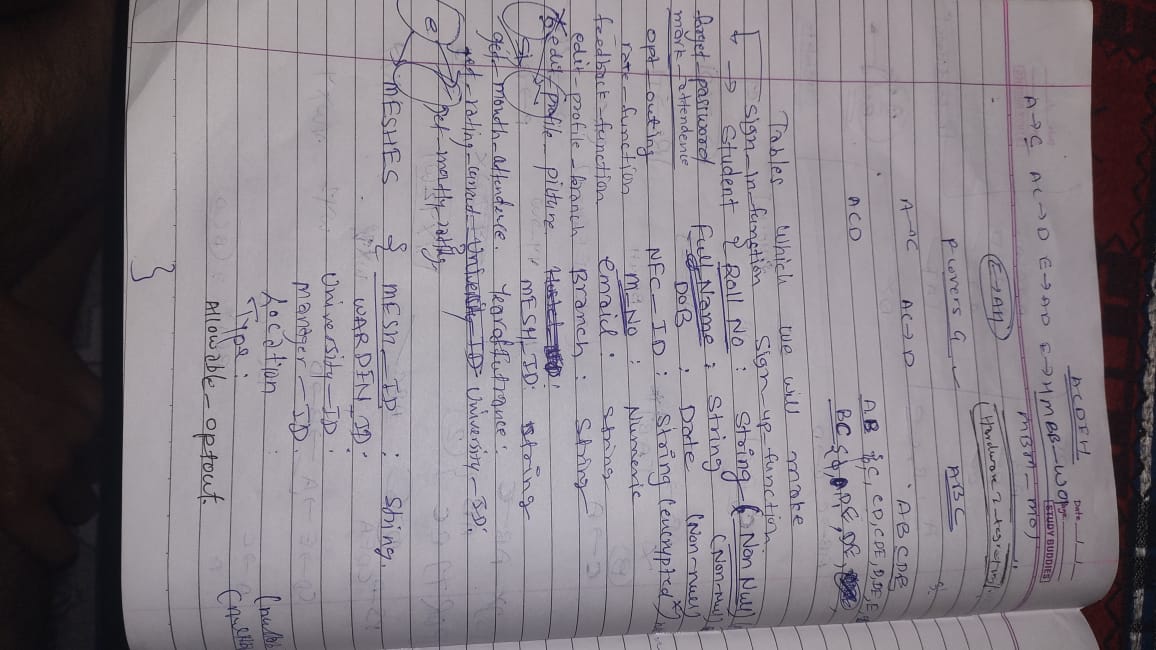 ACDEH
Date
Page
STUDY BUDDIES
A→C AC→D E→AD E→H MBB-WOP
MBM-MO)
E→AH
Hardware Integration
F covers G
ABC
A→C AC→D
ABCDE
ACD
AB {C, CD, CDE, D, DE, E,
BC {φ, D, E, DE,
Tables which we will make
sign_in_function sign_up_function
→ Student { Roll No : String (Non Null)
forget_password Full Name : String (Non-null)
mark_attendence DOB : Date (Non-null)
opt_outing NFC_ID : String (encrypted)
rate_function M_No : Numeric
feedback_function email : String
edit_profile_branch Branch : String
edit_profile_picture Hostel ID :
MESH_ID : String
get_month_attendence. YearofEntrance :
get_rating_current University_ID University_ID:
get_montly_rating
e
MESHES { MESH_ID : String.
WARDEN_ID :
University_ID :
Manager_ID.
Location :
Type :
Allowable_optout.
}